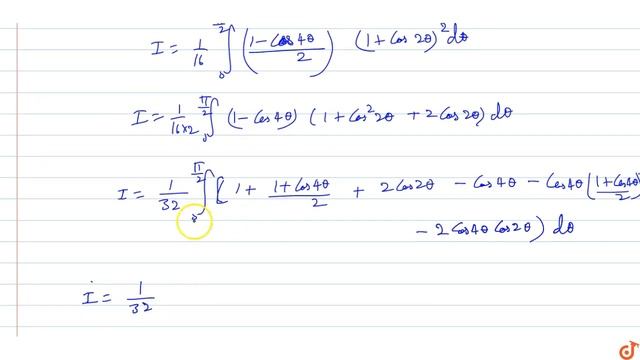 I = 1/16 ∫₀^{π/2} ((1 - Cos 4θ)/2) (1 + Cos 2θ)² dθ
I = 1/(16×2) ∫₀^{π/2} (1 - Cos 4θ) (1 + Cos² 2θ + 2 Cos 2θ) dθ
I = 1/32 ∫₀^{π/2} [1 + (1 + Cos 4θ)/2 + 2 Cos 2θ - Cos 4θ - Cos 4θ ((1 + Cos 4θ)/2)
- 2 Cos 4θ Cos 2θ) dθ
I = 1/32